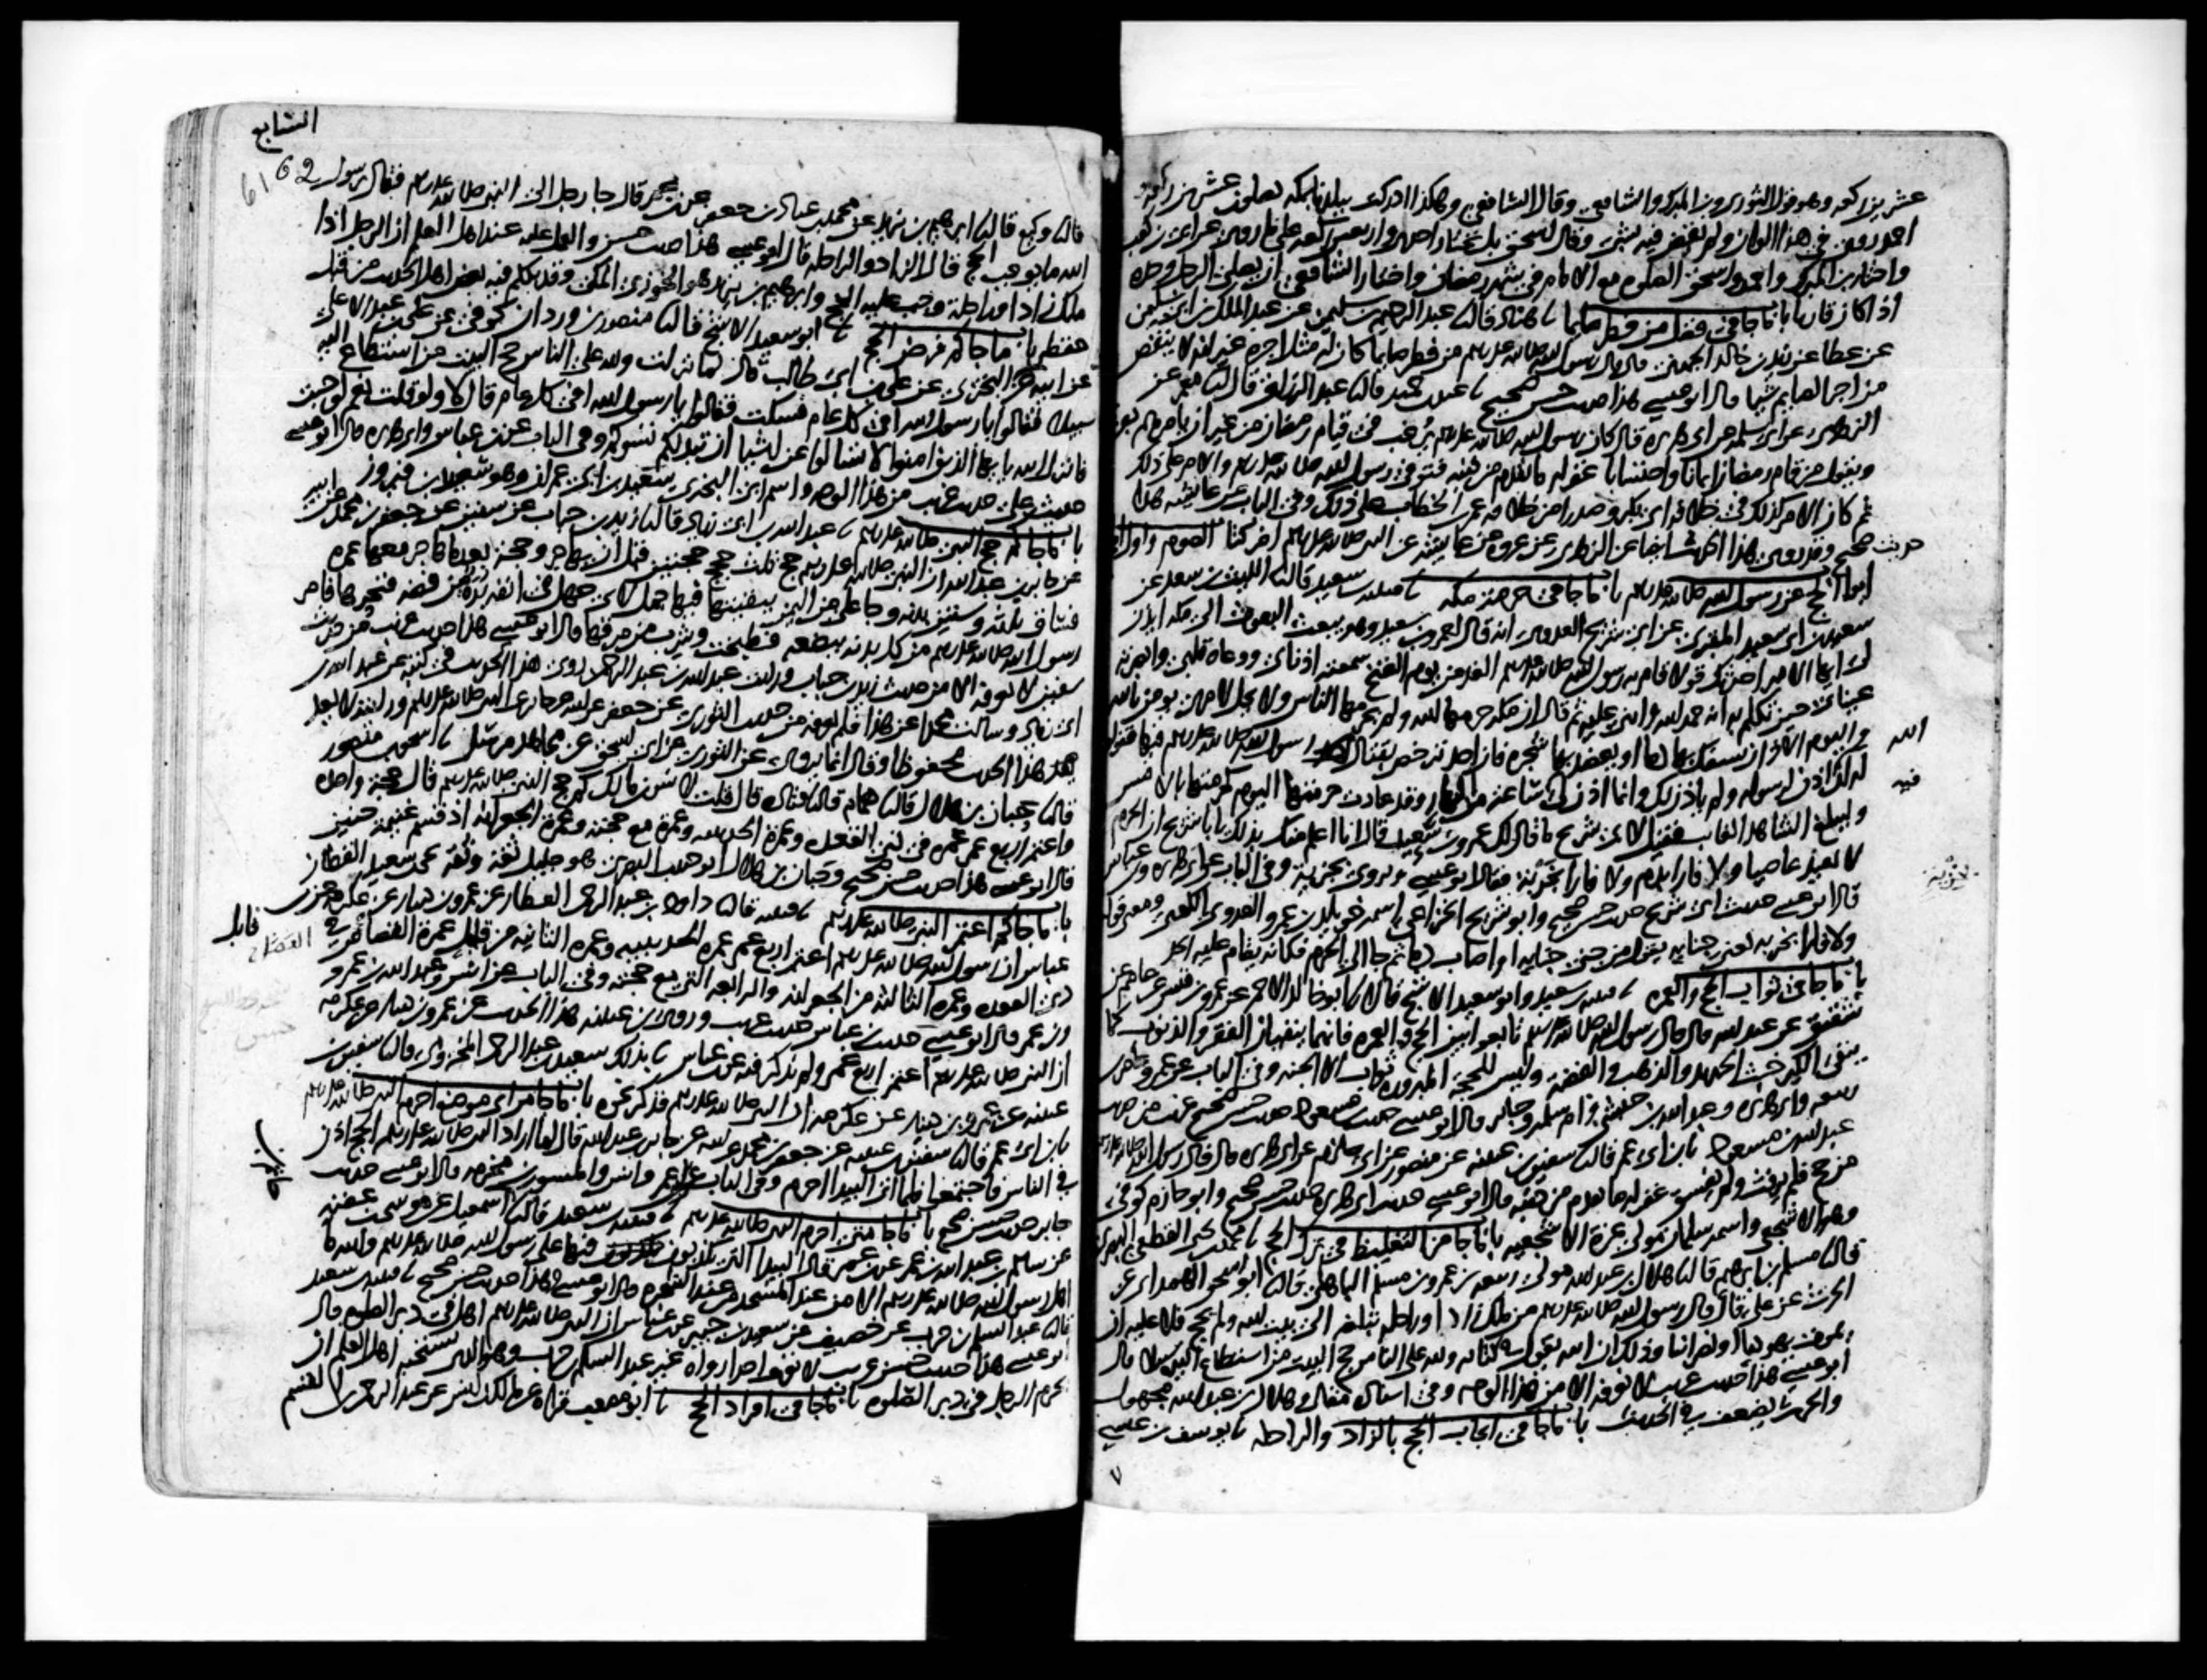 عشرين ركعه وهو قول الثوري وبن المبرك والشافعي وقال الشافعي وهكذا ادركت ببلدنا بمكه يصلون عشرين ركعه
احمد روي في هذا الوان ولم يقض فيه بشي وقال اسحق بل نختار احدى واربعين ركعه على ما روي عن ابي بن كعب
واختار بن المبرك واحمد واسحق الصلوه مع الامام في شهر رمضان واختار الشافعي ان يصلي الرجل وحده
اذا كان قاريا باب ما جا في فضل من فطر صايما هناد قال عبد الرحيم بن سليمن عن عبد الملك بن ابي سليمن
عن عطا عن زيد بن خالد الجهني قال قال رسول الله صلى الله عليه وسلم من فطر صايما كان له مثل اجره غير انه لا ينقص
من اجر الصايم شيا قال ابو عيسى هذا حديث حسن صحيح عبد بن حميد قال عبد الرزاق قال معمر عن
الزهري عن ابي سلمه عن ابي هريره قال كان رسول الله صلى الله عليه وسلم يرغب في قيام رمضان من غير ان يامرهم
ويقول من قام رمضان ايمانا واحتسابا غفر له ما تقدم من ذنبه فتوفي رسول الله صلى الله عليه وسلم والامر على ذلك
ثم كان الامر كذلك في خلافه ابي بكر وصدرا من خلافه عمر بن الخطاب على ذلك وفي الباب عن عايشه هذا
حديث صحيح وقد روي هذا الحديث ايضا عن الزهري عن عروه عن عايشه عن النبي صلى الله عليه وسلم اخر كتاب الصوم واول
ابواب الحج عن رسول الله صلى الله عليه وسلم باب ما جا في حرمه مكه قتيبه بن سعيد قال الليث بن سعد عن
سعيد بن ابي سعيد المقبري عن ابي شريح العدوي انه قال لعمرو بن سعيد وهو يبعث البعوث الى مكه ايذن
لي ايها الامير احدثك قولا قام به رسول الله صلى الله عليه وسلم الغد من يوم الفتح سمعته اذناي ووعاه قلبي وابصرته
عيناي حين تكلم به انه حمد الله واثنى عليه ثم قال ان مكه حرمها الله ولم يحرمها الناس ولا يحل لامري يومن بالله
واليوم الاخر ان يسفك بها دما او يعضد بها شجره فان احد ترخص بقتال رسول الله صلى الله عليه وسلم فيها فقولوا
الله
له ان الله اذن لرسوله ولم ياذن لك وانما اذن لي ساعه من النهار وقد عادت حرمتها اليوم كحرمتها بالامس
فيه
وليبلغ الشاهد الغايب فقيل لابي شريح ما قال لك عمرو بن سعيد قال انا اعلم منك بذلك يابا شريح ان الحرم
لا يعيذ عاصيا ولا فارا بدم ولا فارا بخربة قال ابو عيسى ويروى بخزية وفي الباب عن ابي هريره وبن عباس
قال ابو عيسى حديث ابي شريح حديث حسن صحيح وابو شريح الخزاعي اسمه خويلد بن عمرو العدوي الكعبي ومعنى قوله
ولا فارا بخربه يعني جنايه يقول من جنى جنايه او اصاب دما ثم جا الى الحرم فكانه يقام عليه الحد
باب ما جا في ثواب الحج والعمره قتيبه بن سعيد وابو سعيد الاشج قال ابو خالد الاحمر عن عمرو بن قيس عن عاصم عن
شقيق عن عبد الله قال قال رسول الله صلى الله عليه وسلم تابعوا بين الحج والعمره فانهما ينفيان الفقر والذنوب كما
ينفي الكير خبث الحديد والذهب والفضة وليس للحجة المبروره ثواب الا الجنه وفي الباب عن عمر وعامر بن
ربيعه وابي هريره وعبد الله بن حبشي وام سلمه وجابر قال ابو عيسى حديث بن مسعود حديث حسن صحيح غريب من حديث
عبد الله بن مسعود بن ابي عمر قال سفين بن عيينه عن منصور عن ابي حازم عن ابي هريره قال قال رسول الله صلى الله عليه وسلم
من حج فلم يرفث ولم يفسق غفر له ما تقدم من ذنبه قال ابو عيسى حديث ابي هريره حديث حسن صحيح وابو حازم كوفي
وهو الاشجعي واسمه سلمان مولى عزة الاشجعيه باب ما جا من التغليظ في ترك الحج محمد بن يحيى القطعي البصري
قال مسلم بن ابرهيم قال هلال بن عبد الله مولى ربيعه بن عمرو بن مسلم الباهلي قال ابو اسحق الهمداني عن
الحرث عن علي قال قال رسول الله صلى الله عليه وسلم من ملك زادا وراحله تبلغه الى بيت الله ولم يحج فلا عليه ان
يموت يهوديا او نصرانيا وذلك ان الله يقول في كتابه ولله على الناس حج البيت من استطاع اليه سبيلا قال
ابو عيسى هذا حديث غريب لا نعرفه الا من هذا الوجه وفي اسناده مقال وهلال بن عبد الله مجهول
والحرث يضعف في الحديث باب ما جا في ايجاب الحج بالزاد والراحله يوسف بن عيسى
السابع
61 62
قال وكيع قال ابراهيم بن يزيد عن محمد بن عباد بن جعفر عن بن عمر قال جا رجل الى النبي صلى الله عليه وسلم فقال يا رسول
الله ما يوجب الحج قال الزاد والراحله قال ابو عيسى هذا حديث حسن والعمل عليه عند اهل العلم ان الرجل اذا
ملك زادا وراحلة وجب عليه الحج وابرهيم بن يزيد هو الخوزي المكي وقد تكلم فيه بعض اهل الحديث من قبل
حفظه باب ما جا كم فرض الحج ابو سعيد الاشج قال منصور بن وردان كوفي عن علي بن عبد الاعلى
عن ابيه عن ابي البختري عن علي بن ابي طالب قال لما نزلت ولله على الناس حج البيت من استطاع اليه
سبيلا فقالوا يا رسول الله افي كل عام فسكت فقالوا يا رسول الله افي كل عام قال لا ولو قلت نعم لوجبت
فانزل الله يايها الذين امنوا لا تسالوا عن اشيا ان تبد لكم تسوكم وفي الباب عن بن عباس وابي هريره قال ابو عيسى
حديث علي حديث غريب من هذا الوجه واسم ابي البختري سعيد بن ابي عمران وهو سعيد بن فيروز
باب ما جا كم حج النبي صلى الله عليه وسلم عبد الله بن ابي زياد قال زيد بن حباب عن سفين عن جعفر بن محمد عن ابيه
عن جابر بن عبد الله ان النبي صلى الله عليه وسلم حج ثلث حجج حجتين قبل ان يهاجر وحجة بعد ما هاجر معها عمره
فساق ثلثه وستين بدنه وجا علي من اليمن ببقيتها فيها جمل لابي جهل في انفه برة من فضه فنحرها فامر
رسول الله صلى الله عليه وسلم من كل بدنه ببضعه فطبخت وشرب من مرقها قال ابو عيسى هذا حديث غريب من حديث
سفين لا نعرفه الا من حديث زيد بن حباب ورايت عبد الله بن عبد الرحمن روى هذا الحديث في كتبه عن عبد الله بن
ابي زياد وسالت محمدا عن هذا فلم يعرفه من حديث الثوري عن جعفر عن ابيه عن جابر عن النبي صلى الله عليه وسلم ورايته لا يعد
هذا الحديث محفوظا وقال انما يروى عن الثوري عن ابي اسحق عن مجاهد مرسل اسحق بن منصور
قال حبان بن هلال قال همام قال قتاده قال قلت لانس بن مالك كم حج النبي صلى الله عليه وسلم قال حجة واحده
واعتمر اربع عمر عمره في ذي القعده وعمرة الحديبيه وعمرة مع حجته وعمرة الجعرانه اذ قسم غنيمة حنين
قال ابو عيسى هذا حديث حسن صحيح وحبان بن هلال ابو حبيب البصري هو جليل ثقة وثقه يحيى بن سعيد القطان
باب ما جا كم اعتمر النبي صلى الله عليه وسلم قتيبه قال داود بن عبد الرحمن العطار عن عمرو بن دينار عن عكرمه عن بن
عباس ان رسول الله صلى الله عليه وسلم اعتمر اربع عمر عمره الحديبيه وعمره الثانيه من قابل عمرة القصا في
قابل
القضا
ذي القعده وعمره الثالثه من الجعرانه والرابعه التي مع حجته وفي الباب عن انس وعبد الله بن عمرو
وبن عمر قال ابو عيسى حديث بن عباس حديث غريب وروى بن عيينه هذا الحديث عن عمرو بن دينار عن عكرمه
ان النبي صلى الله عليه وسلم اعتمر اربع عمر ولم يذكر فيه عن بن عباس بذلك سعيد بن عبد الرحمن المخزومي قال سفين بن
عيينه عن عمرو بن دينار عن عكرمه ان النبي صلى الله عليه وسلم فذكر نحوه باب ما جا من اي موضع احرم النبي صلى الله عليه وسلم
بن ابي عمر قال سفين بن عيينه عن جعفر بن محمد عن ابيه عن جابر بن عبد الله قال لما اراد النبي صلى الله عليه وسلم الحج اذن
في الناس فاجتمعوا فلما اتى البيدا احرم وفي الباب عن بن عمر وانس والمسور بن مخرمه قال ابو عيسى حديث
جابر حديث حسن صحيح باب ما جا متى احرم النبي صلى الله عليه وسلم قتيبه بن سعيد قال حاتم بن اسمعيل عن موسى بن عقبه
عن سالم بن عبد الله بن عمر عن بن عمر قال البيدا التي يكذبون فيها على رسول الله صلى الله عليه وسلم والله ما
اهل رسول الله صلى الله عليه وسلم الا من عند المسجد من عند الشجره قال ابو عيسى هذا حديث حسن صحيح قتيبه بن سعيد
قال عبد السلم بن حرب عن خصيف عن سعيد بن جبير عن بن عباس ان النبي صلى الله عليه وسلم اهل في دبر الصلوه قال
ابو عيسى هذا حديث حسن غريب لا نعرف احدا رواه غير عبد السلم بن حرب وهو الذي يستحبه اهل العلم ان
يحرم الرجل في دبر الصلوه باب ما جا في افراد الحج ابو مصعب قراه عن مالك بن انس عن عبد الرحمن بن القسم